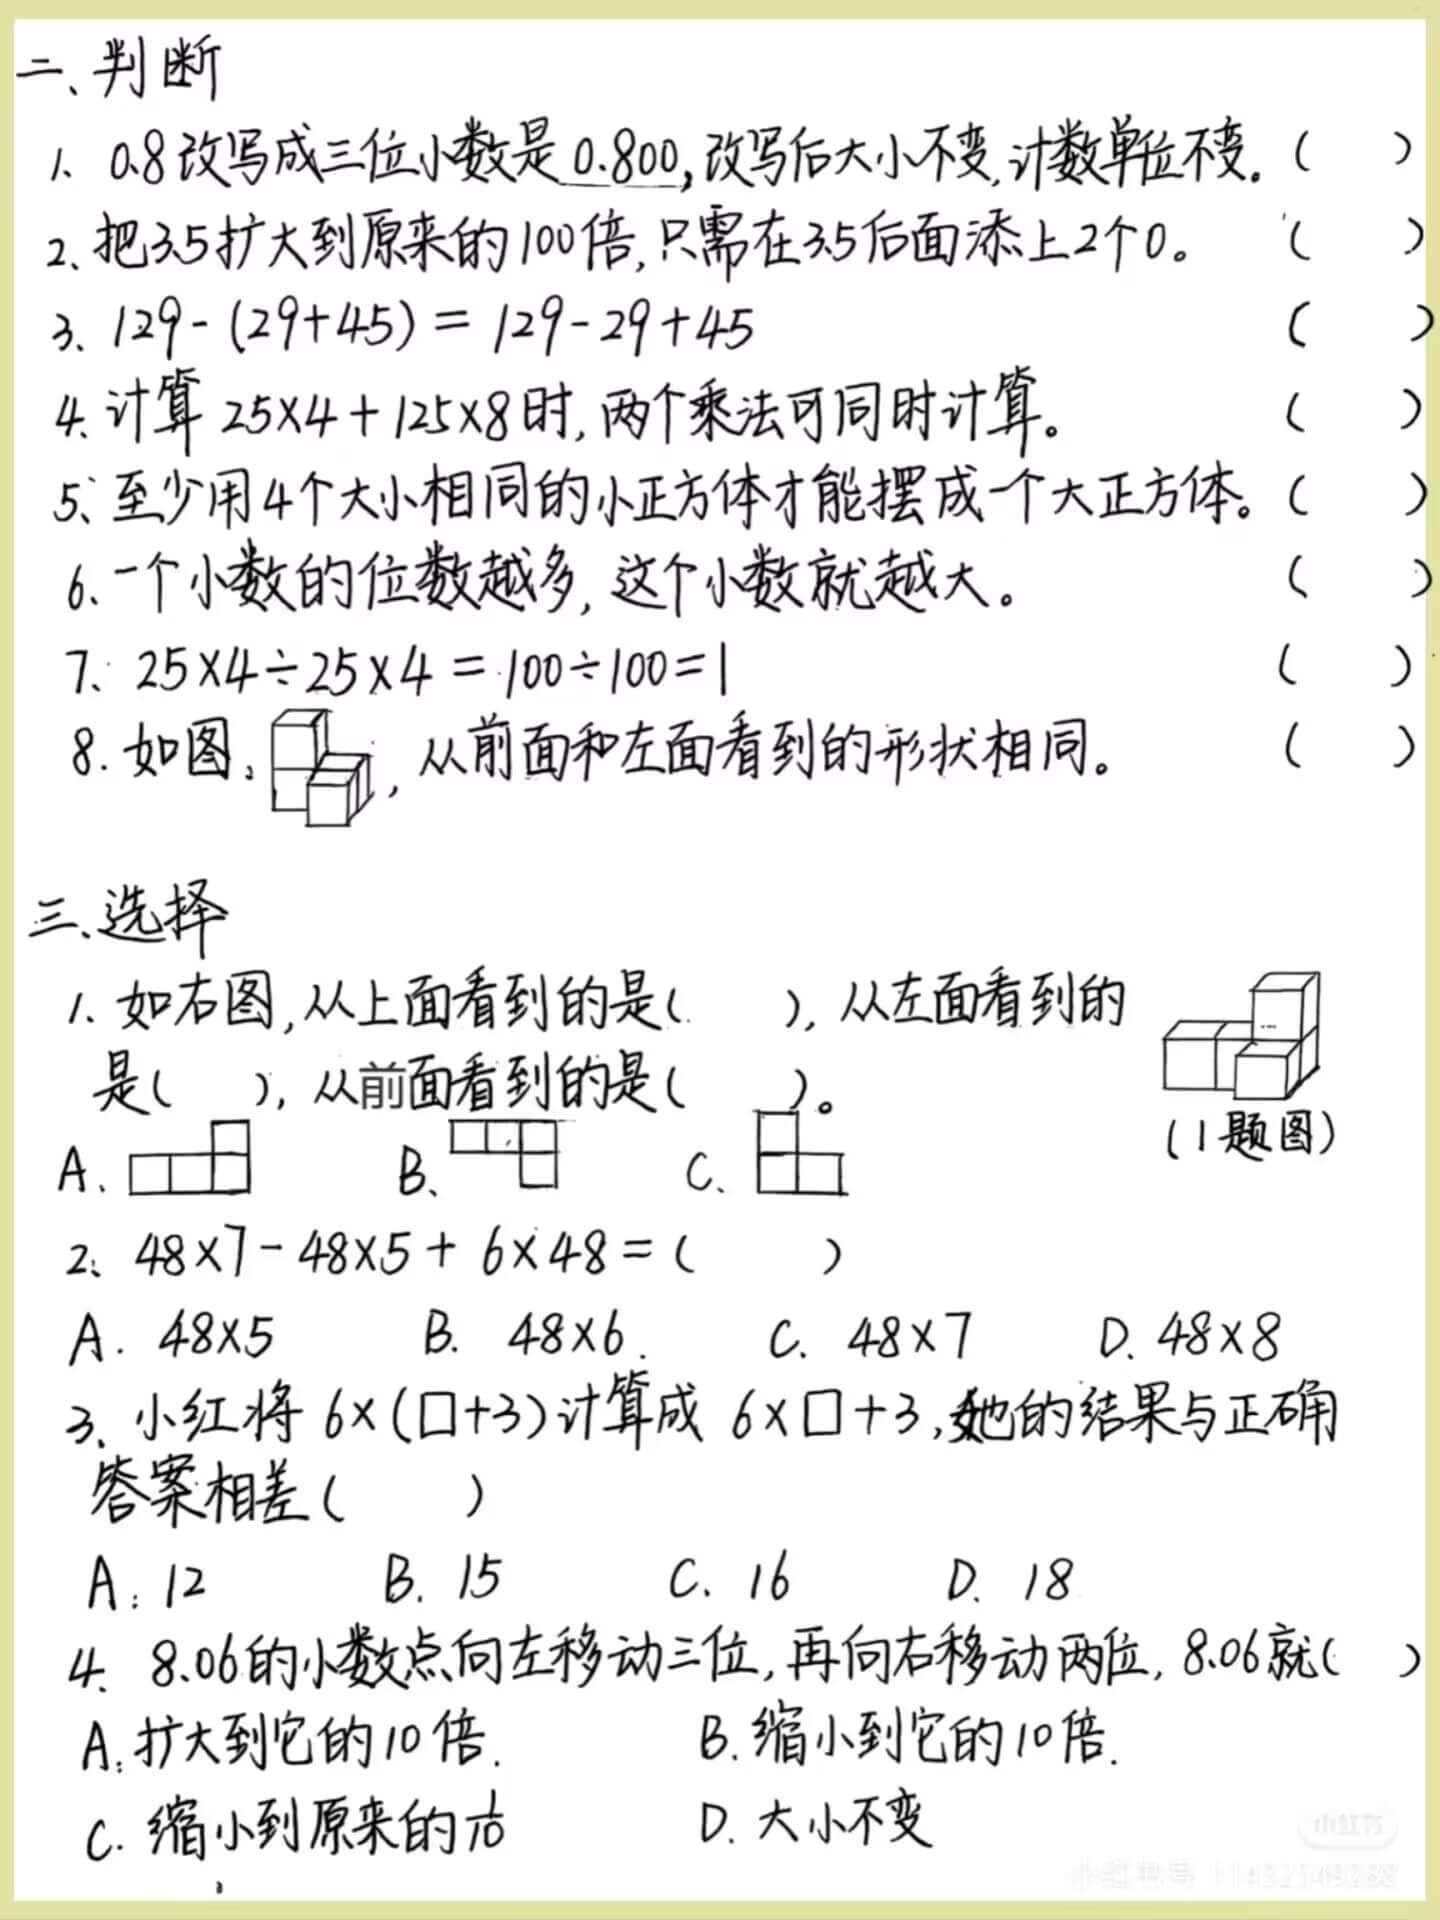 二、判断
1. 0.8改写成三位小数是0.800,改写后大小不变,计数单位不变。(    )
2、把3.5扩大到原来的100倍,只需在3.5后面添上2个0。(    )
3、129-(29+45)=129-29+45 (    )
4、计算25×4+125×8时,两个乘法可同时计算。(    )
5、至少用4个大小相同的小正方体才能摆成一个大正方体。(    )
6、一个小数的位数越多,这个小数就越大。(    )
7、25×4÷25×4=100÷100=1 (    )
8.如图、,从前面和左面看到的形状相同。(    )
三、选择
1、如右图,从上面看到的是(    ),从左面看到的
是(    ),从前面看到的是(    )。
(1题图)
A、 B、 C、
2、48×7-48×5+6×48=(    )
A. 48×5 B. 48×6. C. 48×7 D. 48×8
3、小红将6×(□+3)计算成6×□+3,她的结果与正确
答案相差(    )
A: 12 B. 15 C. 16 D. 18
4、8.06的小数点向左移动三位,再向右移动两位,8.06就(    )
A:扩大到它的10倍. B.缩小到它的10倍.
C.缩小到原来的1/10 D.大小不变
小红书